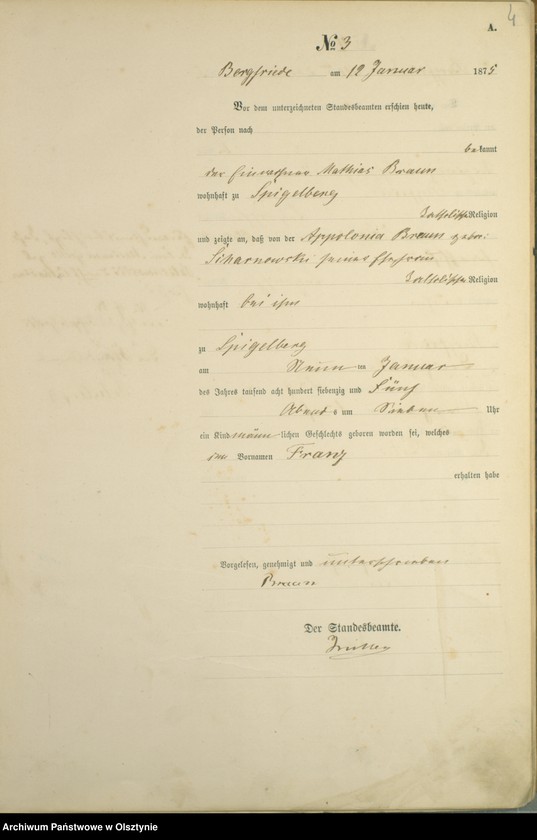 4
A.
No 3
Bergfriede am 12 Januar 1875
Vor dem unterzeichneten Standesbeamten erschien heute,
der Person nach
bekannt
der Einwohner Mathias Braun
wohnhaft zu Spigelberg
katholische Religion
und zeigte an, daß von der Appolonia Braun gebor:
seiner Ehefrau
katholische Religion
wohnhaft bei ihm
zu Spigelberg
am Neun ten Januar
des Jahres tausend acht hundert siebenzig und Fünf
Abends um Sieben Uhr
ein Kind männlichen Geschlechts geboren worden sei, welches
den Vornamen Franz
erhalten habe
Vorgelesen, genehmigt und unterschrieben
Braun
Der Standesbeamte.
Archiwum Państwowe w Olsztynie